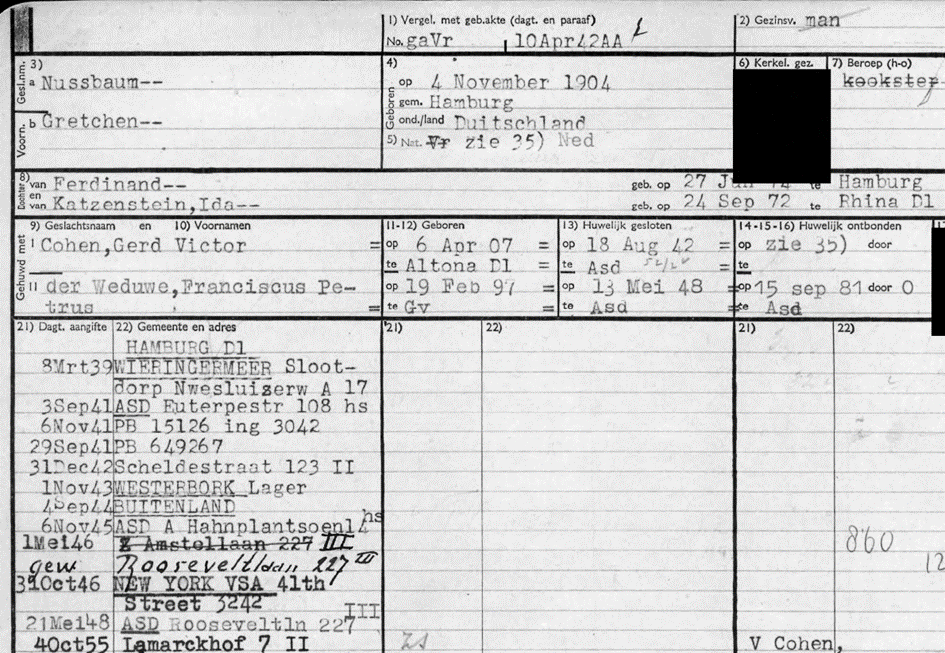 1) Vergel. met geb.akte (dagt. en paraaf)
No. gaVr 10Apr42AA
2) Gezinsv. man
Gesl.nm.
3)
a Nussbaum--
Voorn.
b Gretchen--
4)
Geboren
op 4 November 1904
gem. Hamburg
ond./land Duitschland
5) Nat. Vr zie 35) Ned
6) Kerkel. gez.
7) Beroep (h-o)
kookster
8)
Dochter
van Ferdinand--
en
van Katzenstein,Ida--
geb. op 27 te Hamburg
geb. op 24 Sep 72 te Rhina Dl
Gehuwd met
9) Geslachtsnaam en 10) Voornamen
I Cohen,Gerd Victor =
II der Weduwe,Franciscus Pe-
trus =
11-12) Geboren
op 6 Apr 07 =
te Altona Dl =
op 19 Feb 97 =
te Gv =
13) Huwelijk gesloten
op 18 Aug 42 =
te Asd =
op 13 Mei 48 =
te Asd =
14-15-16) Huwelijk ontbonden
op zie 35) door
te
op 15 sep 81 door O
te Asd
21) Dagt. aangifte 22) Gemeente en adres
21) 22)
21) 22)
HAMBURG Dl
8Mrt39 WIERINGERMEER Sloot-
dorp Nwesluizerw A 17
3Sep41 ASD Euterpestr 108 hs
6Nov41 PB 15126 ing 3042
29Sep41 PB 649267
31Dec42 Scheldestraat 123 II
1Nov43 WESTERBORK Lager
4Sep44 BUITENLAND
6Nov45 ASD A Hahnplantsoen14 hs
1Mei46 Z Amstellaan 227 III
gew Rooseveltlaan 227 III
31Oct46 NEW YORK VSA 41th
Street 3242
21Mei48 ASD Rooseveltln 227 III
4Oct55 Lamarckhof 7 II
860
12
V Cohen,